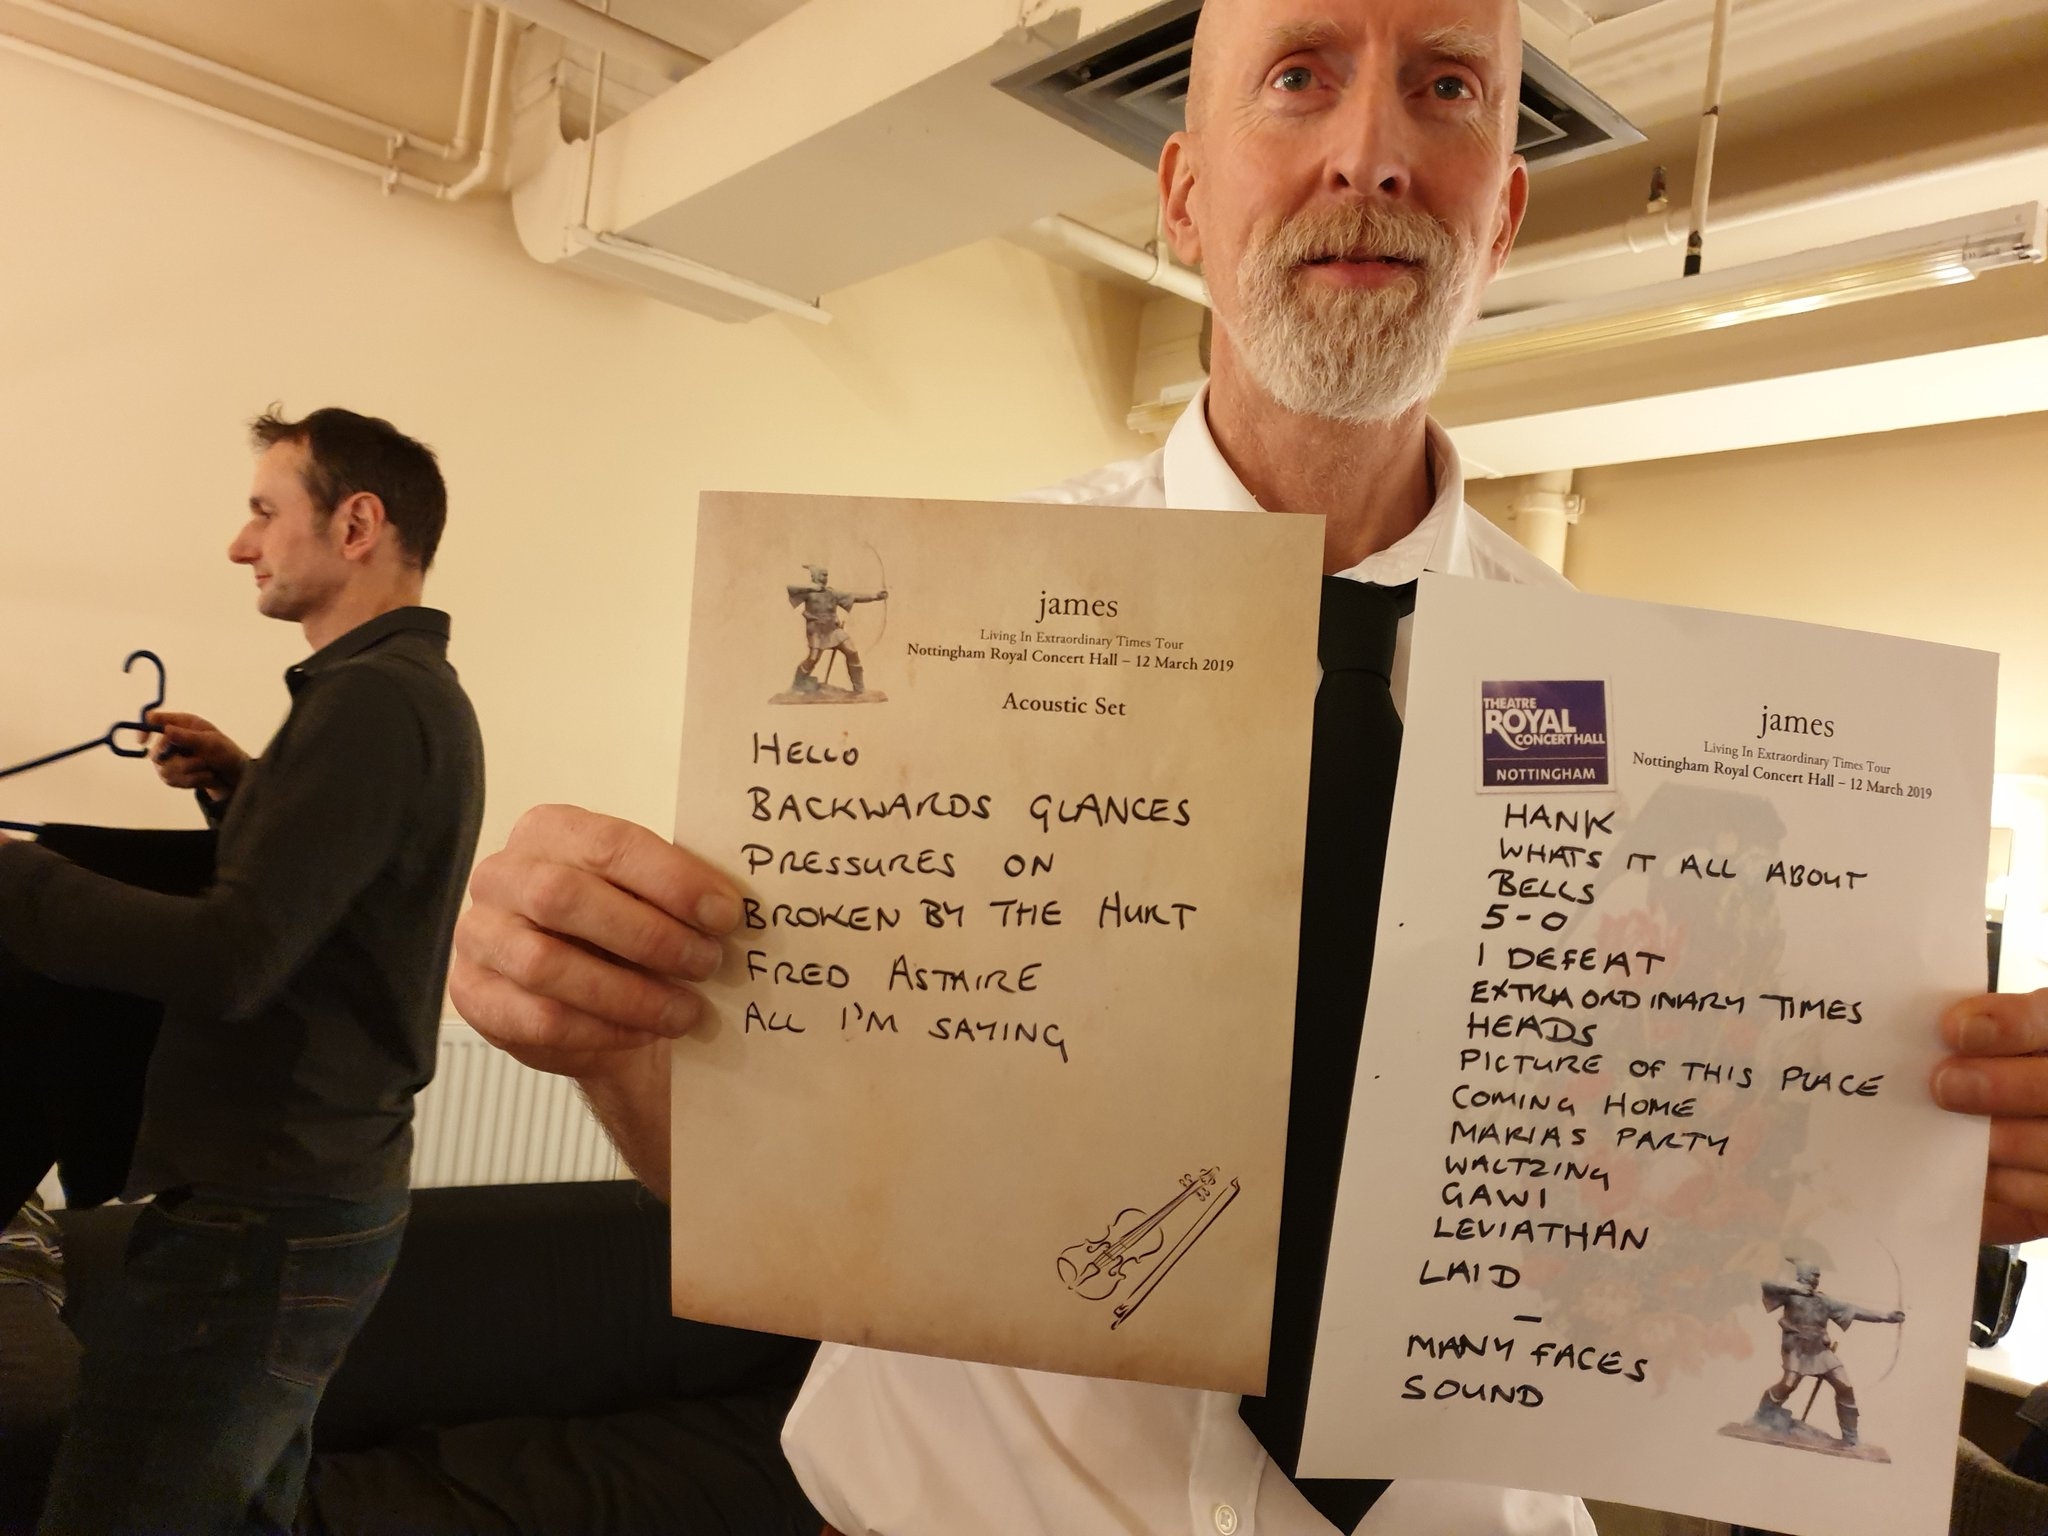 james
Living In Extraordinary Times Tour
Nottingham Royal Concert Hall – 12 March 2019
Acoustic Set
HELLO
BACKWARDS GLANCES
PRESSURES ON
BROKEN BY THE HURT
FRED ASTAIRE
ALL I'M SAYING
THEATRE
ROYAL
CONCERT HALL
NOTTINGHAM
james
Living In Extraordinary Times Tour
Nottingham Royal Concert Hall – 12 March 2019
HANK
WHATS IT ALL ABOUT
BELLS
5-0
I DEFEAT
EXTRAORDINARY TIMES
HEADS
PICTURE OF THIS PLACE
COMING HOME
MARIAS PARTY
WALTZING
GAWI
LEVIATHAN
LAID
–
MANY FACES
SOUND